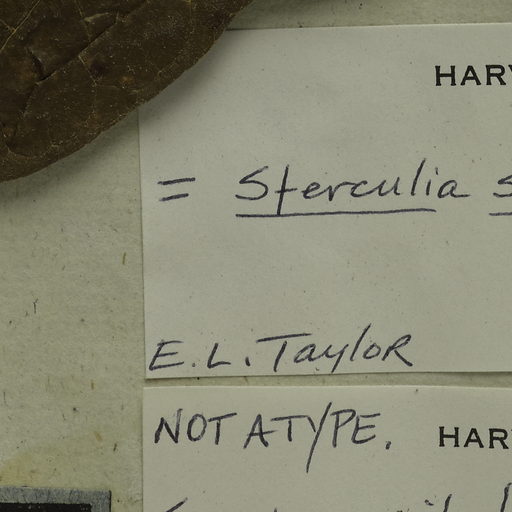 HARV
= Sterculia s
E.L. Taylor
NOT A TYPE. HAR